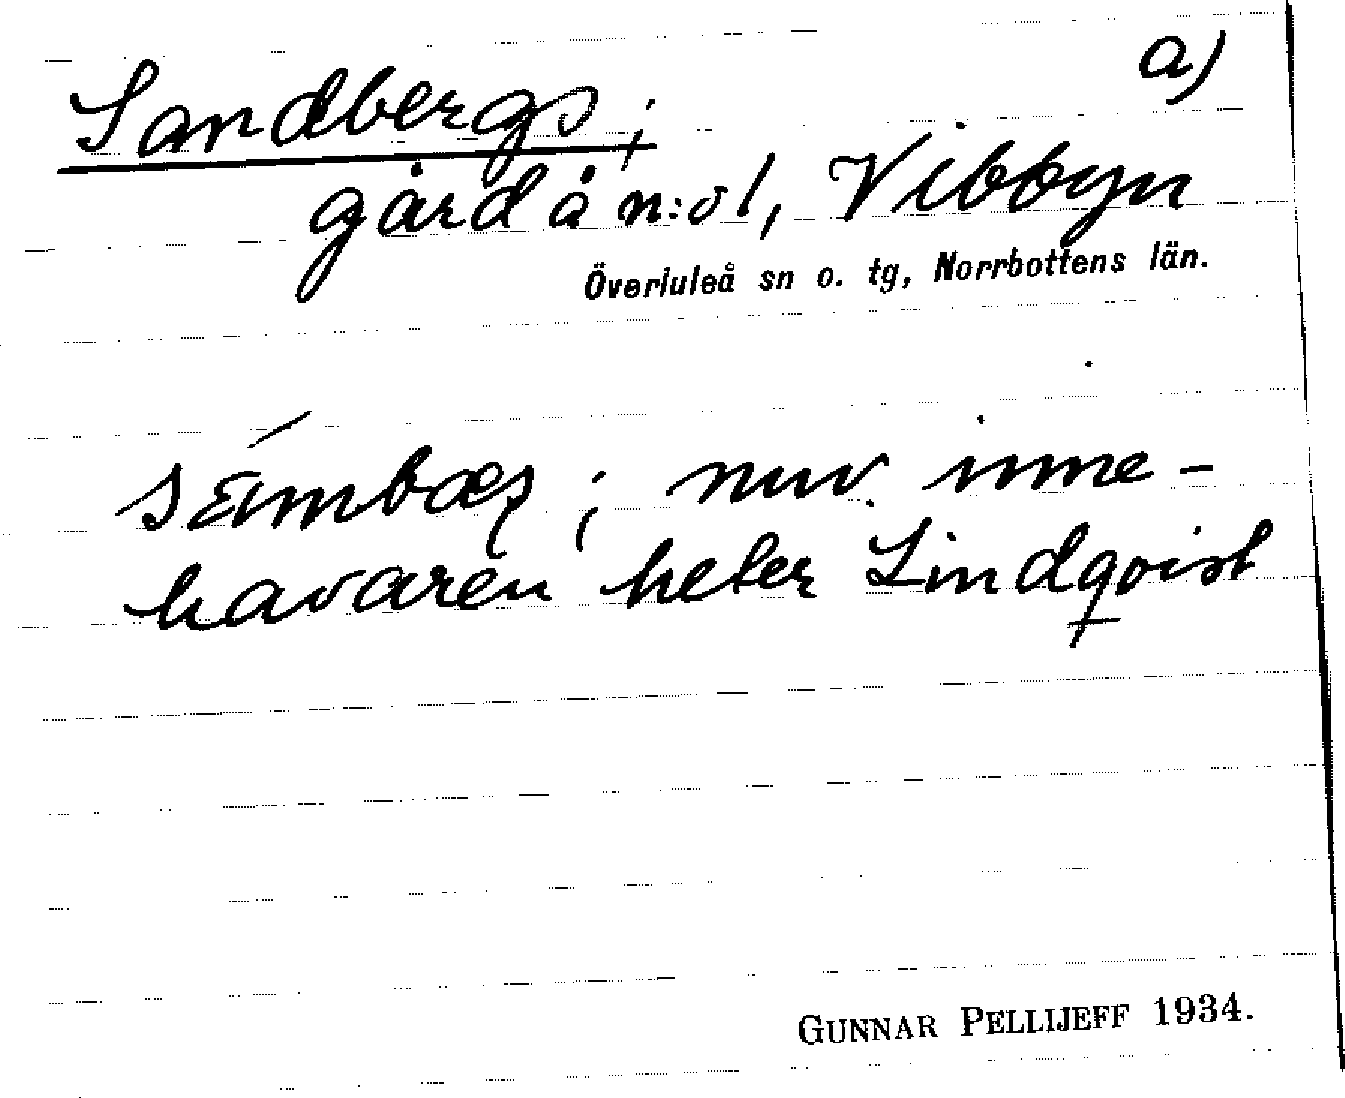 a)
Sandbergs;
gård å n:o 1, Vibbyn
Överluleå sn o. tg, Norrbottens län.
; nuv. inne-
havaren heter Lindqvist
GUNNAR PELLIJEFF 1934.